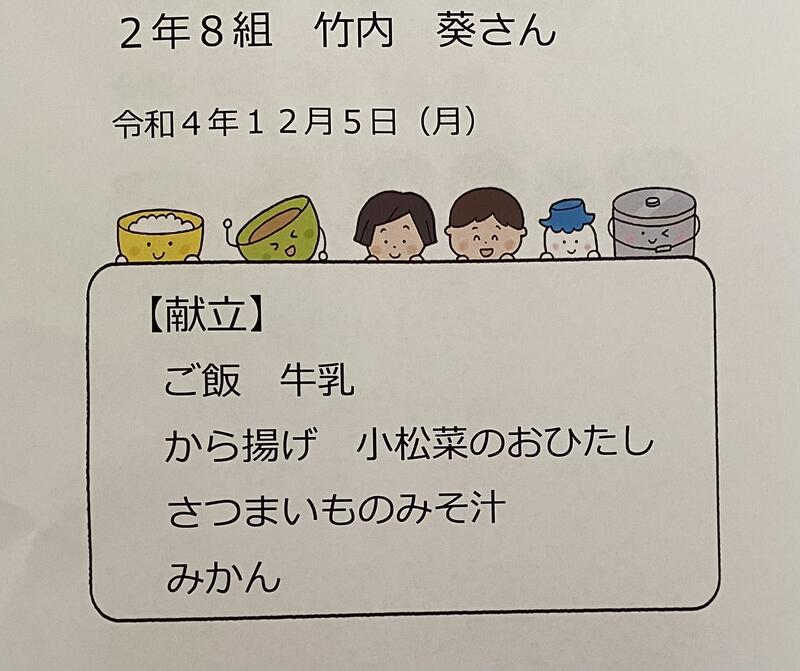 ２年８組　竹内　葵さん
令和４年１２月５日（月）
【献立】
ご飯　牛乳
から揚げ　小松菜のおひたし
さつまいものみそ汁
みかん